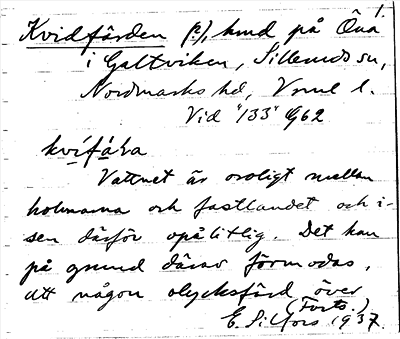 1.
Kvidfärden (?), hmd på Öna
i Galtviken, Sillerudssn,
Nordmarks hd, Vrml l.
Vid "133" G62
kvífä́ra
Vattnet är oroligt mellan
holmarna och fastlandet och i-
sen därför opålitlig. Det kan
på grund därav förmodas,
att någon olycksfärd över
(Forts.)
E. Silfors 1937.